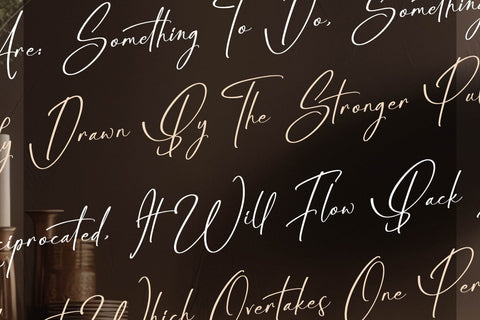 Are: Something To Do, Something
Drawn By The Stronger Pul
ciprocated, It Will Flow Back
Which Overtakes One Per